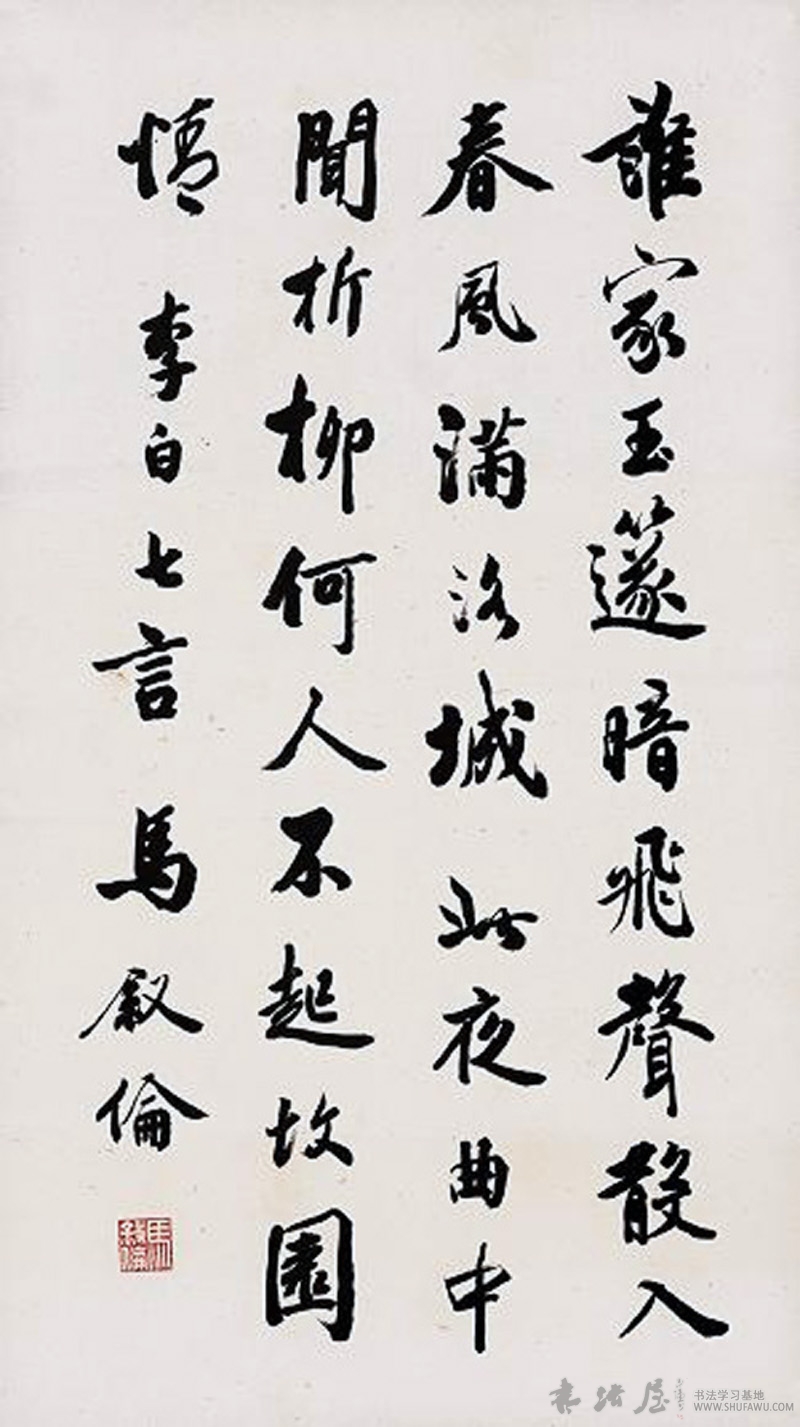 誰家玉篴暗飛聲散入
春風滿洛城此夜曲中
聞折柳何人不起故園
情 李白七言 馬叙倫
书法屋
书法学习基地
WWW.SHUFAWU.COM